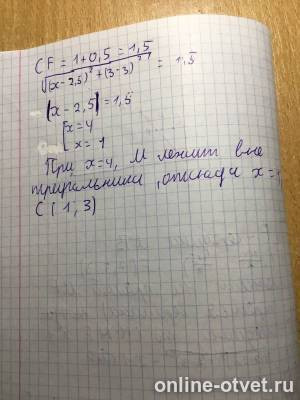 CF = 1+0,5 = 1,5
√(x-2,5)²+(3-3)² = 1,5
|x-2,5|=1,5
[x=4
x=1
При x=4, M лежит вне
треугольника, отсюда x=1
C(1;3)
online-otvet.ru